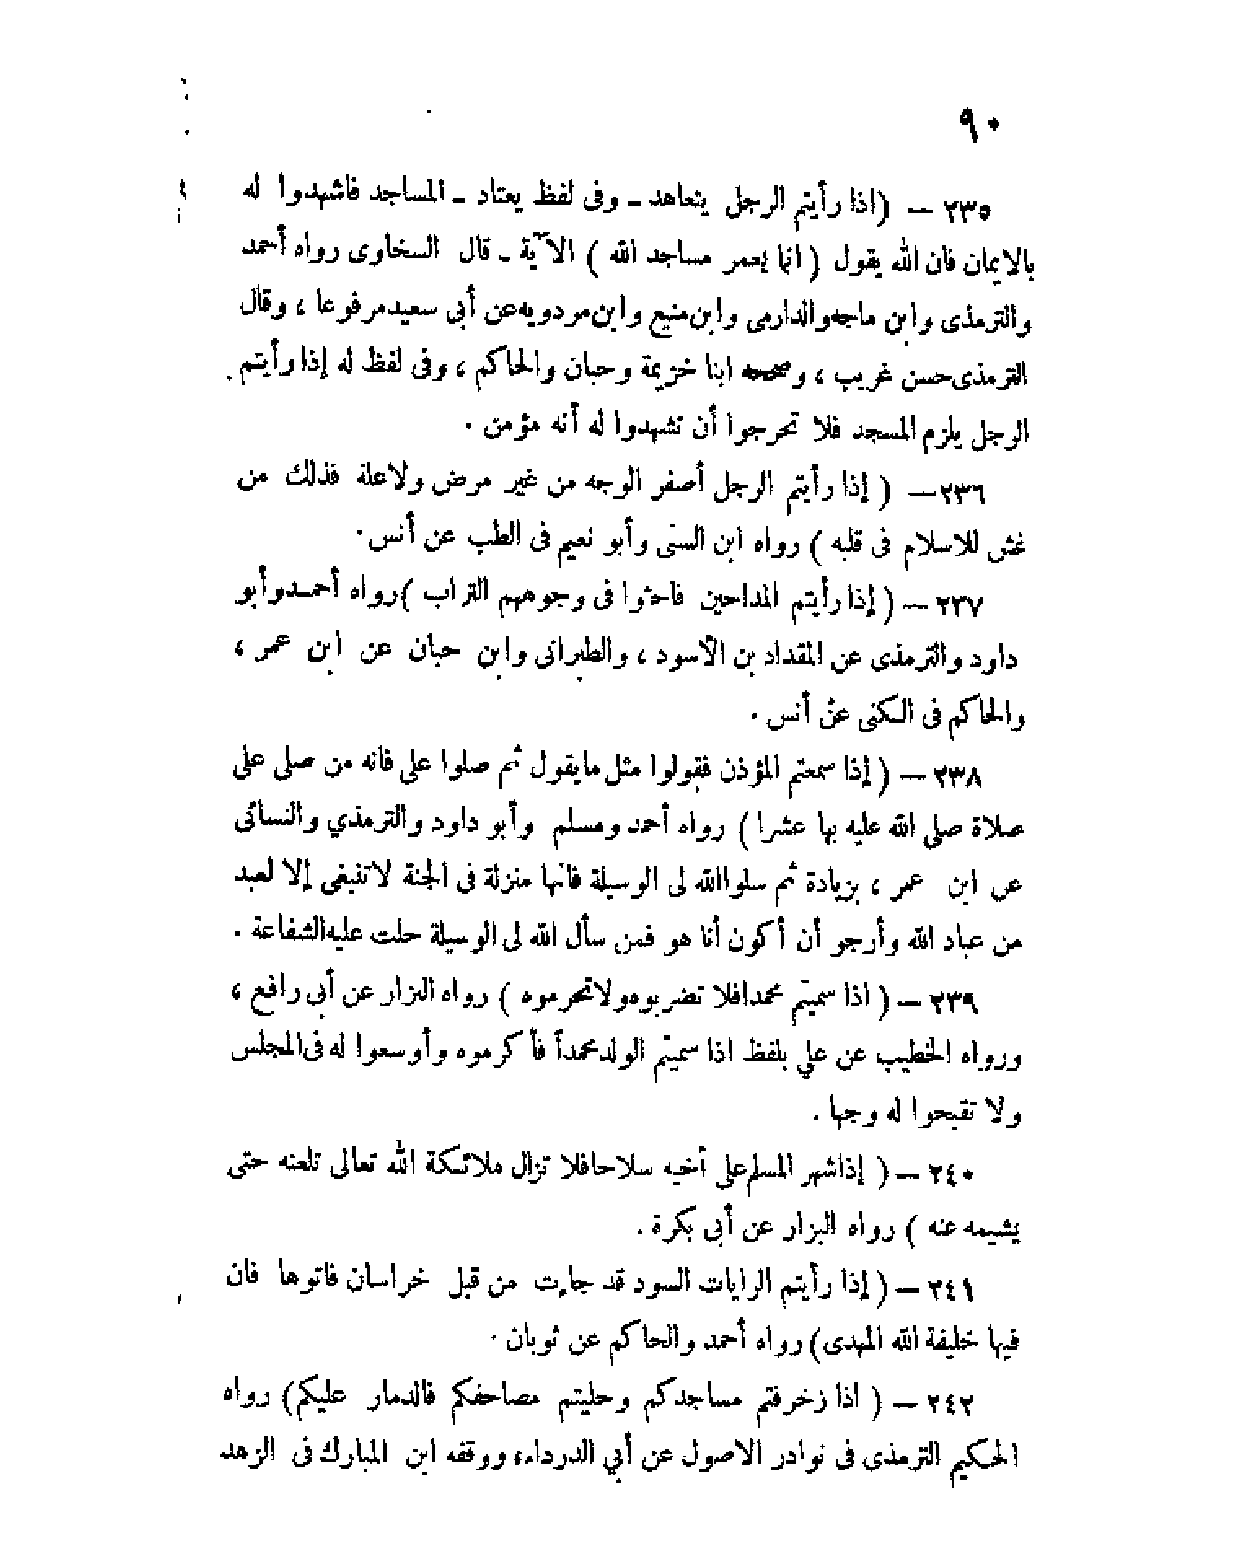 ٩٠
٢٣٥ – (اذا رأيتم الرجل يتعاهد - وفى لفظ يعتاد - المساجد فاشهدوا له
بالايمان فان الله يقول ( انما يعمر مساجد الله ) الآية - قال السخاوى رواه أحمد
والترمذى وابن ماجه والدارمى وابن منيع وابن مردويه عن أبى سعيد مرفوعا ، وقال
الترمذى حسن غريب ، وصححه ابنا خزيمة وحبان والحاكم ، وفى لفظ له إذا رأيتم
الرجل يلزم المسجد فلا تحرجوا أن تشهدوا له أنه مؤمن .
٢٣٦ – ( إذا رأيتم الرجل أصفر الوجه من غير مرض ولا علة فذلك من
غش للاسلام فى قلبه ) رواه ابن السنى وأبو نعيم فى الطب عن أنس .
٢٣٧ – ( إذا رأيتم المداحين فاحثوا فى وجوههم التراب ) رواه أحمد وأبو
داود والترمذى عن المقداد بن الأسود ، والطبرانى وابن حبان عن ابن عمر ،
والحاكم فى الكنى عن أنس .
٢٣٨ – ( إذا سمعتم المؤذن فقولوا مثل ما يقول ثم صلوا على فانه من صلى على
صلاة صلى الله عليه بها عشرا ) رواه أحمد ومسلم وأبو داود والترمذي والنسائى
عن ابن عمر ، بزيادة ثم سلوا الله لى الوسيلة فانها منزلة فى الجنة لا تنبغى إلا لعبد
من عباد الله وأرجو أن أكون أنا هو فمن سأل الله لى الوسيلة حلت عليه الشفاعة .
٢٣٩ – ( اذا سميتم محمدا فلا تضربوه ولا تحرموه ) رواه البزار عن أبى رافع ،
ورواه الخطيب عن علي بلفظ اذا سميتم الولد محمداً فأكرموه وأوسعوا له فى المجلس
ولا تقبحوا له وجها .
٢٤٠ – ( إذا شهر المسلم على أخيه سلاحا فلا تزال ملائكة الله تعالى تلعنه حتى
يشيمه عنه ) رواه البزار عن أبى بكرة .
٢٤١ – ( إذا رأيتم الرايات السود قد جاءت من قبل خراسان فاتوها فان
فيها خليفة الله المهدى) رواه أحمد والحاكم عن ثوبان .
٢٤٢ – ( اذا زخرفتم مساجدكم وحليتم مصاحفكم فالدمار عليكم) رواه
الحكيم الترمذى فى نوادر الاصول عن أبي الدرداء، ووقفه ابن المبارك فى الزهد